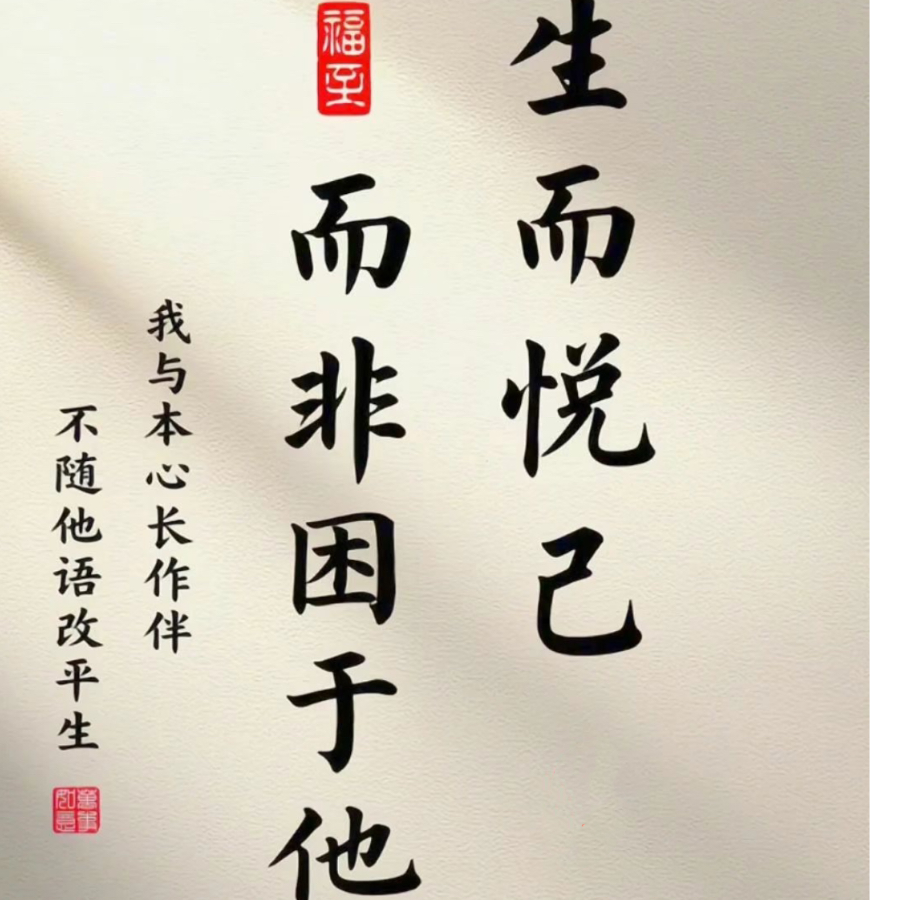 生而悦己
福至
而非困于他
我与本心长作伴
不随他语改平生
萬事如意